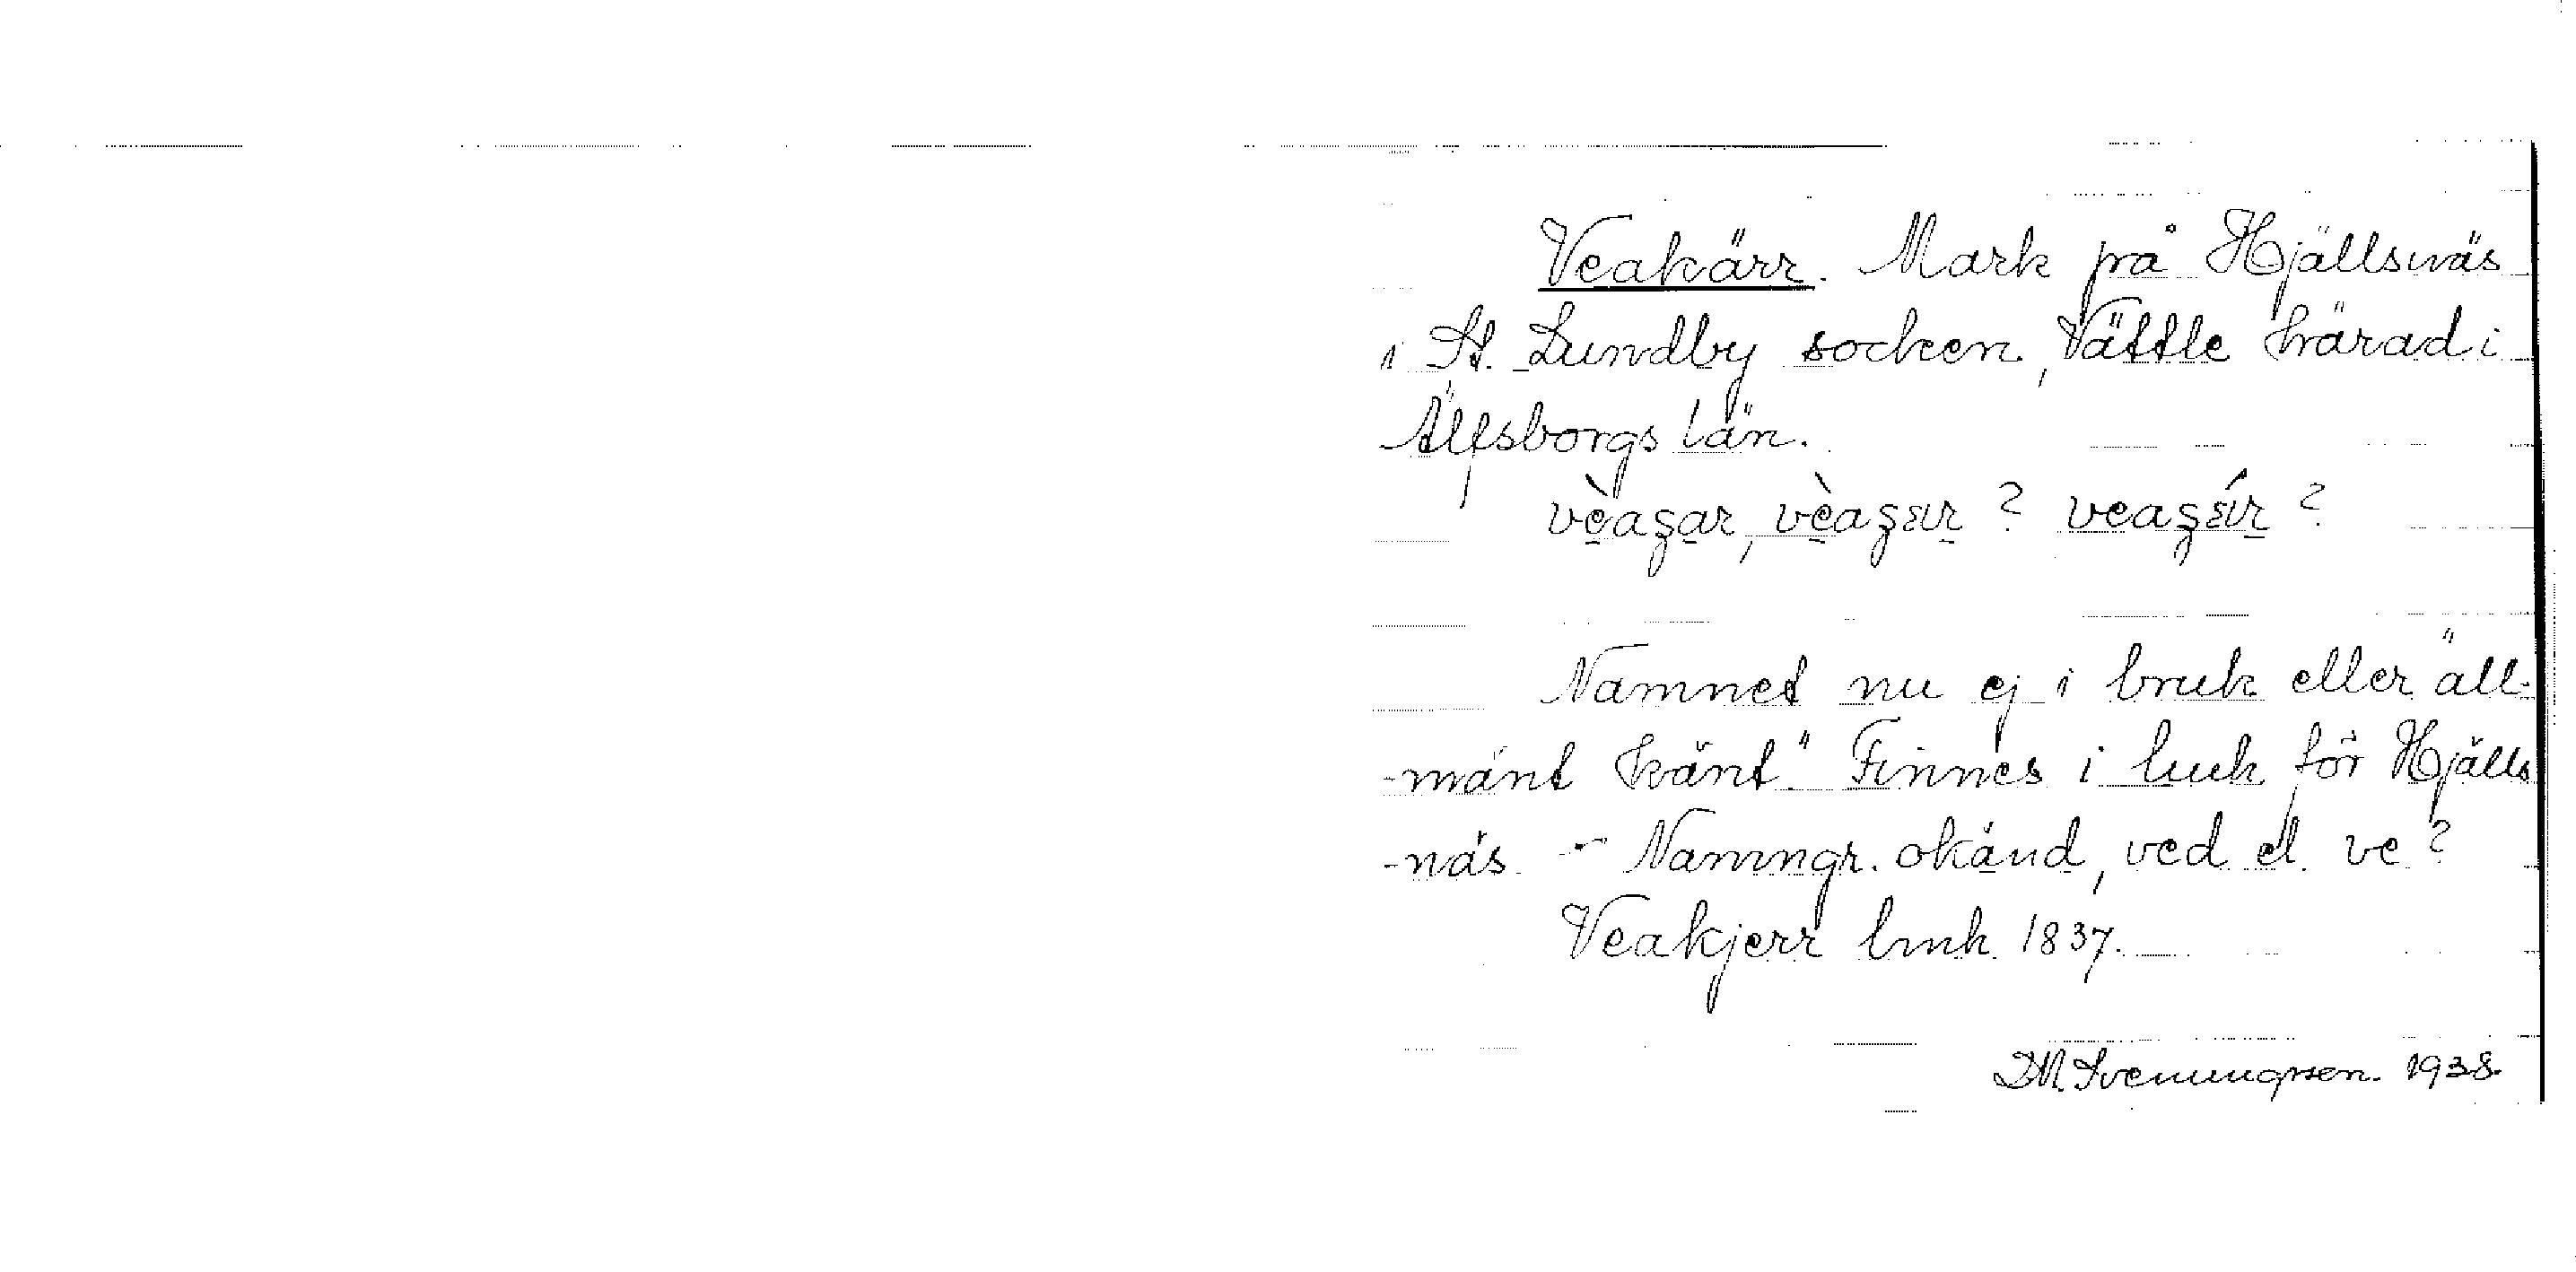 Veakärr. Mark på Hjällsnäs
i St. Lundby socken, Vättle härad i
Älfsborgs län.
Namnet nu ej i bruk eller "all-
-mänt känt". Finnes i lmh för Hjälls
-näs. - Namngr. okänd, ved el. ve?
Veakjerr lmh. 1837.
D.M. Svenungsson. 1938.